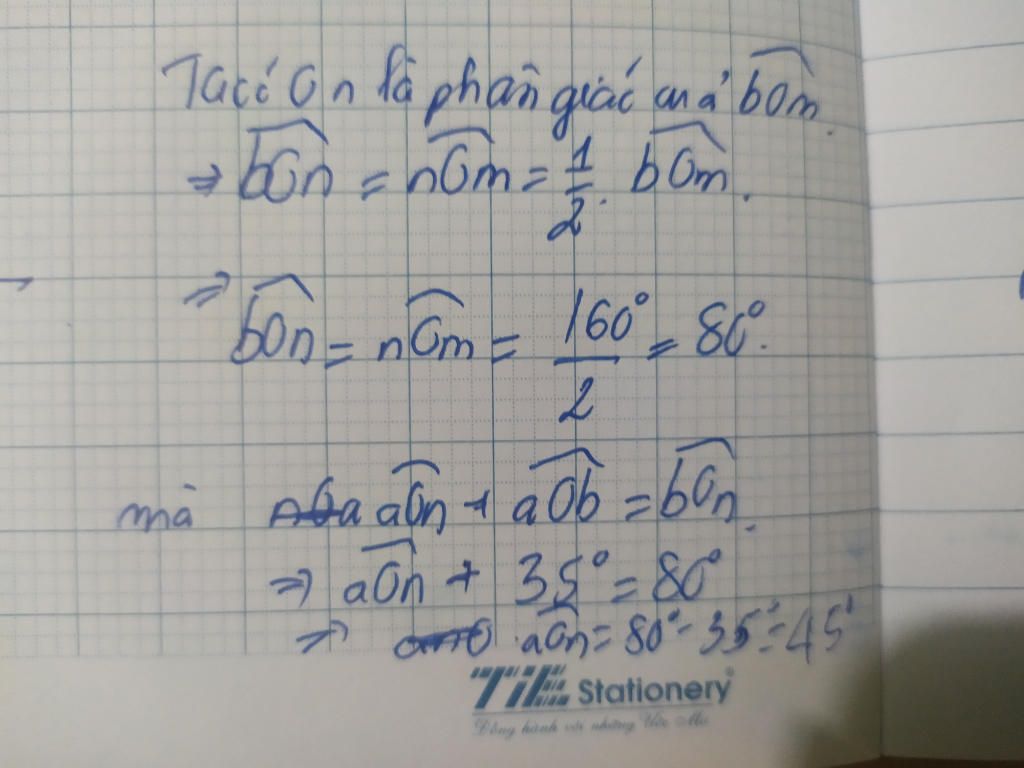 Ta có On là phân giác của bOm.
⇒ bOn = nOm = 1/2 . bOm.
⇒ bOn = nOm = 160°/2 = 80°.
mà aOn + aOb = bOn.
⇒ aOn + 35° = 80°
⇒ aOn = 80° - 35° = 45°
TiE Stationery
Đồng hành với những Ước Mơ